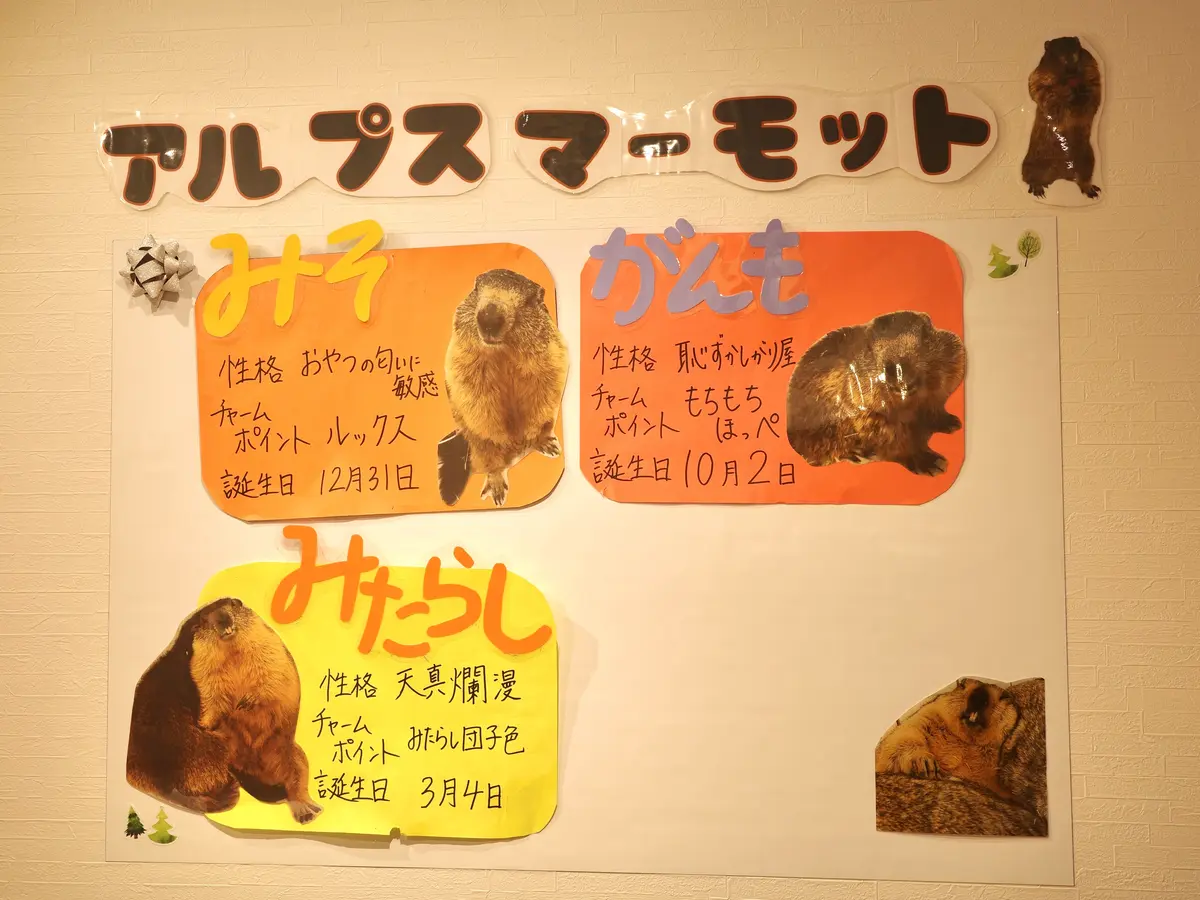 アルプスマーモット
みそ
性格 おやつの匂いに
敏感
チャーム
ポイント ルックス
誕生日 12月31日
がんも
性格 恥ずかしがり屋
チャーム
ポイント もちもち
ほっぺ
誕生日 10月2日
みたらし
性格 天真爛漫
チャーム
ポイント みたらし団子色
誕生日 3月4日